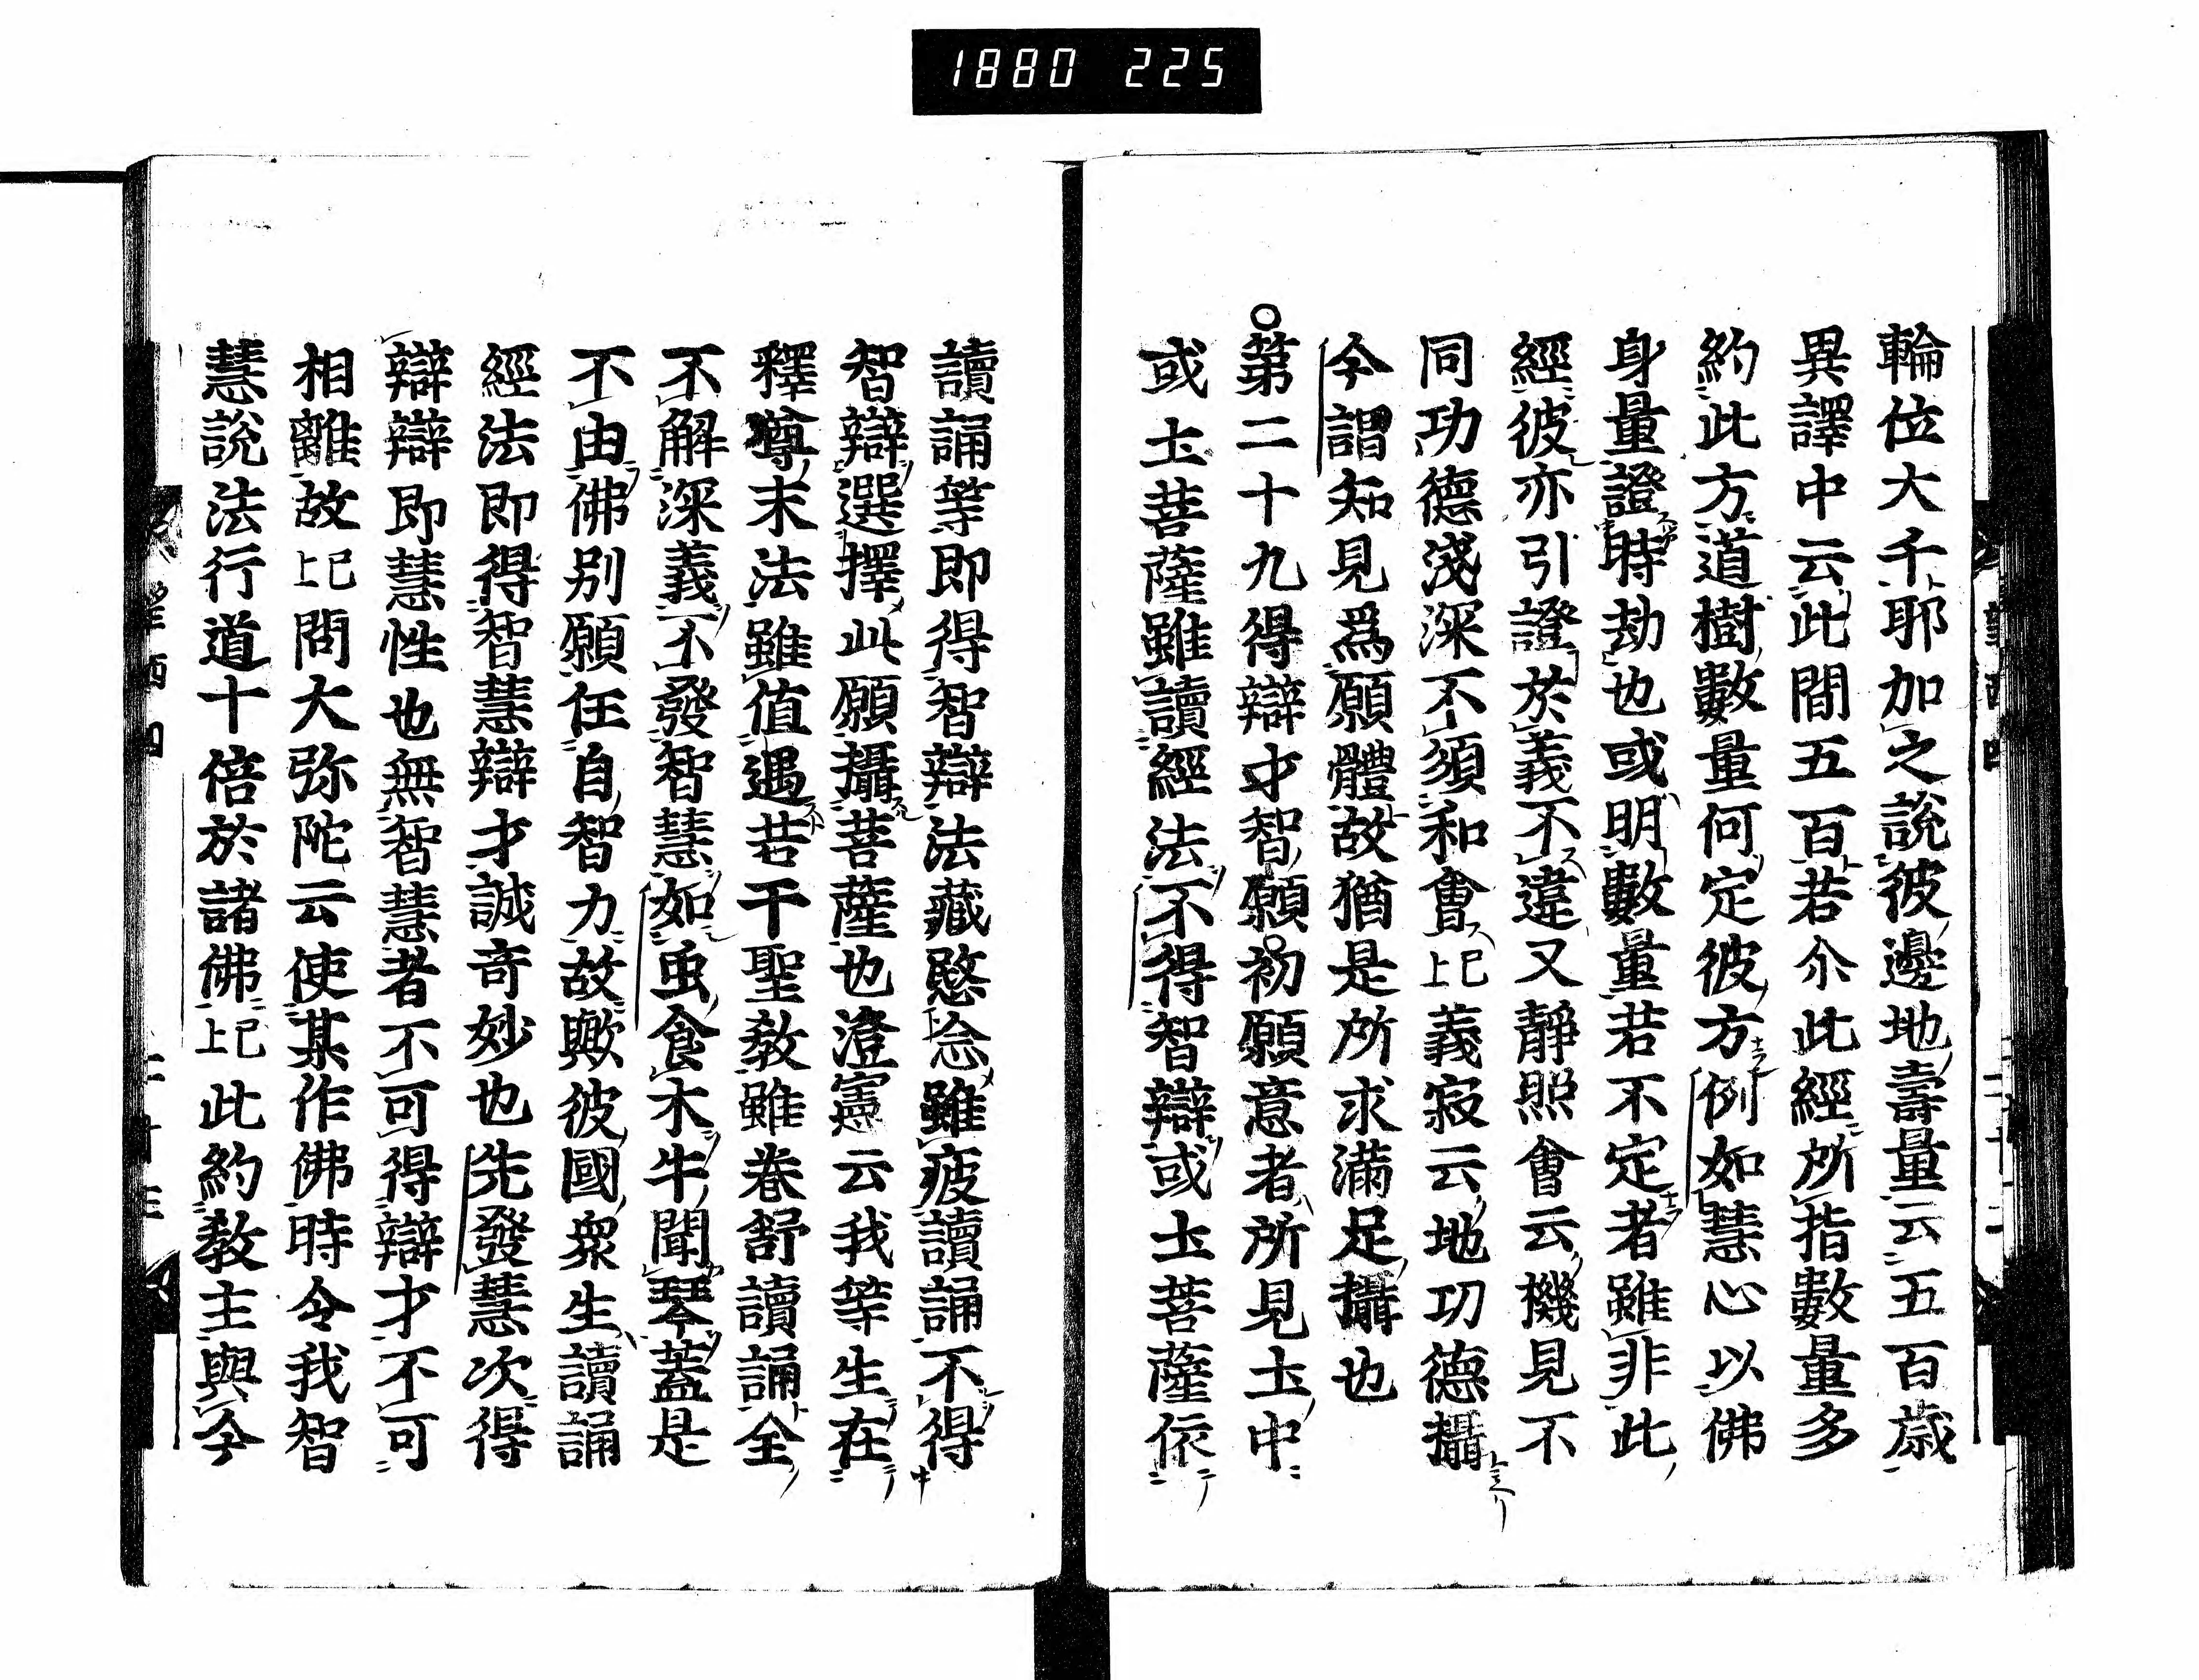 1880 225
輪位大千耶加之說彼邊地壽量云五百歳
異譯中云此間五百若尒此經所指數量多
約此方道樹數量何定彼方例如慧心以佛
身量證時劫也或明數量若不定者雖非此
經彼亦引證於義不違又靜照會云機見不
同功德淺深不須和會已上義寂云地功德攝
今謂知見爲願體故猶是所求滿足攝也
○第二十九得辯才智願初願意者所見土中
或土菩薩雖讀經法不得智辯或土菩薩依
讀誦等即得智辯法藏愍念雖疲讀誦不得
智辯選擇此願攝菩薩也澄憲云我等生在
釋尊末法雖値遇若干聖教雖卷舒讀誦全
不解深義不發智慧如虫食木牛聞琴蓋是
不由佛別願任自智力故歟彼國衆生讀誦
經法即得智慧辯才誠奇妙也先發慧次得
辯辯即慧性也無智慧者不可得辯才不可
相離故已上問大弥陀云使某作佛時令我智
慧說法行道十倍於諸佛已上此約教主與今